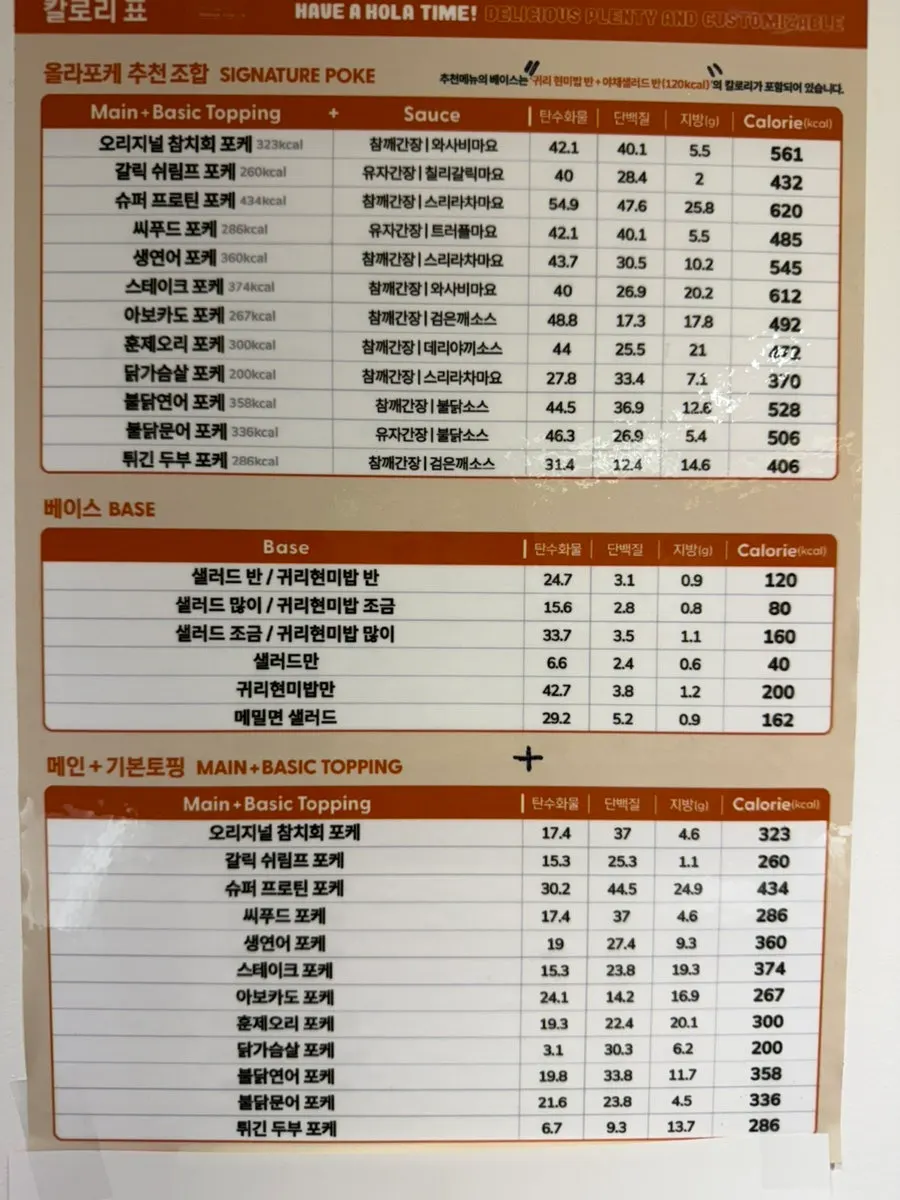 칼로리 표
HAVE A HOLA TIME! DELICIOUS PLENTY AND CUSTOMIZABLE
올라포케 추천조합 SIGNATURE POKE
추천메뉴의 베이스는 "귀리 현미밥 반+야채샐러드 반(120kcal)"의 칼로리가 포함되어 있습니다.
Main+Basic Topping + Sauce 탄수화물 단백질 지방(g) Calorie(kcal)
오리지널 참치회 포케 323kcal 참깨간장|와사비마요 42.1 40.1 5.5 561
갈릭 쉬림프 포케 260kcal 유자간장|칠리갈릭마요 40 28.4 2 432
슈퍼 프로틴 포케 434kcal 참깨간장|스리라차마요 54.9 47.6 25.8 620
씨푸드 포케 286kcal 유자간장|트러플마요 42.1 40.1 5.5 485
생연어 포케 360kcal 참깨간장|스리라차마요 43.7 30.5 10.2 545
스테이크 포케 374kcal 참깨간장|와사비마요 40 26.9 20.2 612
아보카도 포케 267kcal 참깨간장|검은깨소스 48.8 17.3 17.8 492
훈제오리 포케 300kcal 참깨간장|데리야끼소스 44 25.5 21 472
닭가슴살 포케 200kcal 참깨간장|스리라차마요 27.8 33.4 7.1 370
불닭연어 포케 358kcal 참깨간장|불닭소스 44.5 36.9 12.6 528
불닭문어 포케 336kcal 유자간장|불닭소스 46.3 26.9 5.4 506
튀긴 두부 포케 286kcal 참깨간장|검은깨소스 31.4 12.4 14.6 406
베이스 BASE
Base 탄수화물 단백질 지방(g) Calorie(kcal)
샐러드 반 / 귀리현미밥 반 24.7 3.1 0.9 120
샐러드 많이 / 귀리현미밥 조금 15.6 2.8 0.8 80
샐러드 조금 / 귀리현미밥 많이 33.7 3.5 1.1 160
샐러드만 6.6 2.4 0.6 40
귀리현미밥만 42.7 3.8 1.2 200
메밀면 샐러드 29.2 5.2 0.9 162
메인+기본토핑 MAIN+BASIC TOPPING +
Main+Basic Topping 탄수화물 단백질 지방(g) Calorie(kcal)
오리지널 참치회 포케 17.4 37 4.6 323
갈릭 쉬림프 포케 15.3 25.3 1.1 260
슈퍼 프로틴 포케 30.2 44.5 24.9 434
씨푸드 포케 17.4 37 4.6 286
생연어 포케 19 27.4 9.3 360
스테이크 포케 15.3 23.8 19.3 374
아보카도 포케 24.1 14.2 16.9 267
훈제오리 포케 19.3 22.4 20.1 300
닭가슴살 포케 3.1 30.3 6.2 200
불닭연어 포케 19.8 33.8 11.7 358
불닭문어 포케 21.6 23.8 4.5 336
튀긴 두부 포케 6.7 9.3 13.7 286